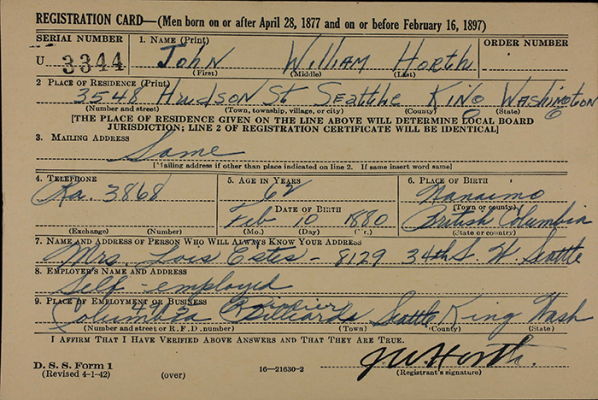 REGISTRATION CARD—(Men born on or after April 28, 1877 and on or before February 16, 1897)
SERIAL NUMBER 1. NAME (Print) ORDER NUMBER
U 3344 John William Horth
(First) (Middle) (Last)
2 PLACE OF RESIDENCE (Print)
3548 Hudson St Seattle King Washington
(Number and street) (Town, township, village, or city) (County) (State)
[THE PLACE OF RESIDENCE GIVEN ON THE LINE ABOVE WILL DETERMINE LOCAL BOARD
JURISDICTION; LINE 2 OF REGISTRATION CERTIFICATE WILL BE IDENTICAL]
3. MAILING ADDRESS
Same
[Mailing address if other than place indicated on line 2. If same insert word same]
4. TELEPHONE 5. AGE IN YEARS 6. PLACE OF BIRTH
Ra. 3868 62 Nanaimo
DATE OF BIRTH (Town or county)
Feb 10 1880 British Columbia
(Exchange) (Number) (Mo.) (Day) (Yr.) (State or country)
7. NAME AND ADDRESS OF PERSON WHO WILL ALWAYS KNOW YOUR ADDRESS
Mrs. Lois Estes - 8129 34th S. W. Seattle
8. EMPLOYER'S NAME AND ADDRESS
Self-employed
9. PLACE OF EMPLOYMENT OR BUSINESS
Rainier
Columbia Billiards Seattle King Wash
(Number and street or R. F. D. number) (Town) (County) (State)
I AFFIRM THAT I HAVE VERIFIED ABOVE ANSWERS AND THAT THEY ARE TRUE.
J W Horth.
D. S. S. Form 1
(Revised 4-1-42) (over) 16—21630-2 (Registrant's signature)